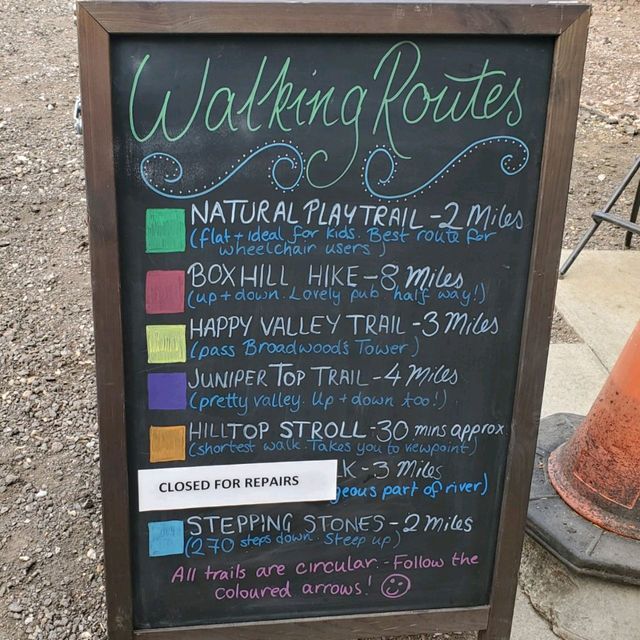 Walking Routes
NATURAL PLAY TRAIL - 2 Miles
(flat + ideal for kids. Best route for
wheelchair users)
BOX HILL HIKE - 8 Miles
(up + down. Lovely pub half way!)
HAPPY VALLEY TRAIL - 3 Miles
(pass Broadwood's Tower)
JUNIPER TOP TRAIL - 4 Miles
(pretty valley. Up + down too!)
HILLTOP STROLL - 30 mins approx.
(shortest walk. Takes you to viewpoint)
K - 3 Miles
CLOSED FOR REPAIRS
geous part of river)
STEPPING STONES - 2 Miles
(270 steps down. Steep up)
All trails are circular - Follow the
coloured arrows!